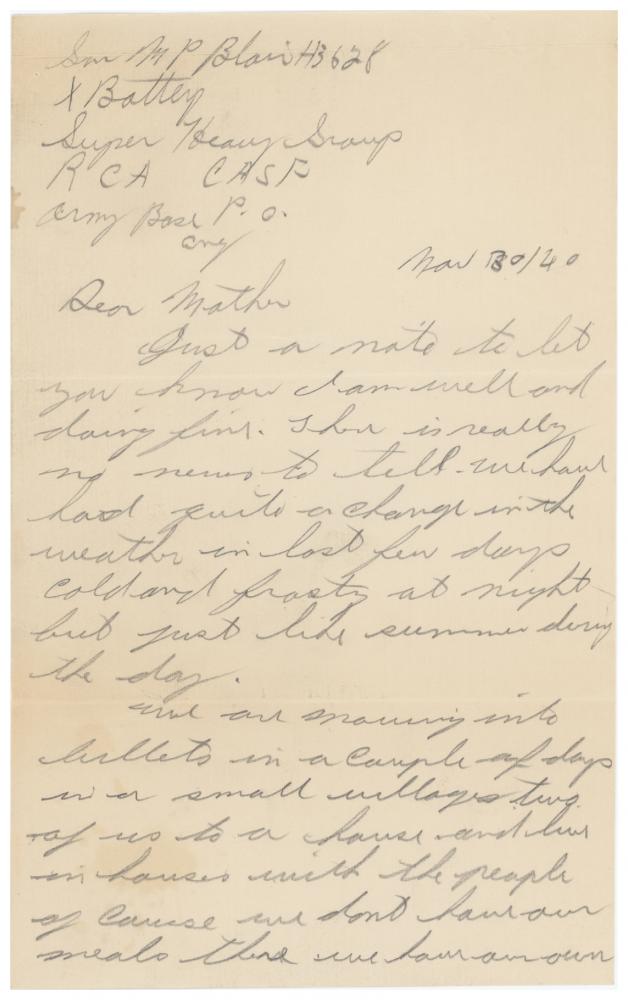 Gnr M P Blair H3628
X Battery
Super Heavy Group
R C A CASF
Army Base P. O.
Nov 30/40
Dear Mother
Just a note to let
you know I am well and
doing fine. There is really
no news to tell. we have
had quite a change in the
weather in last few days
cold and frosty at night
but just like summer during
the day.
We are moving into
billets in a couple of days
in a small village two
of us to a house and live
in houses with the people
of course we dont have our
meals there we have our own